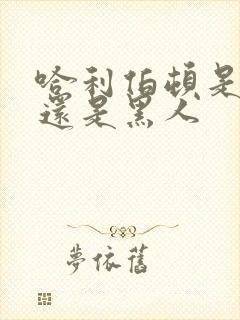 哈利伯頓是
還是黑人
夢依舊